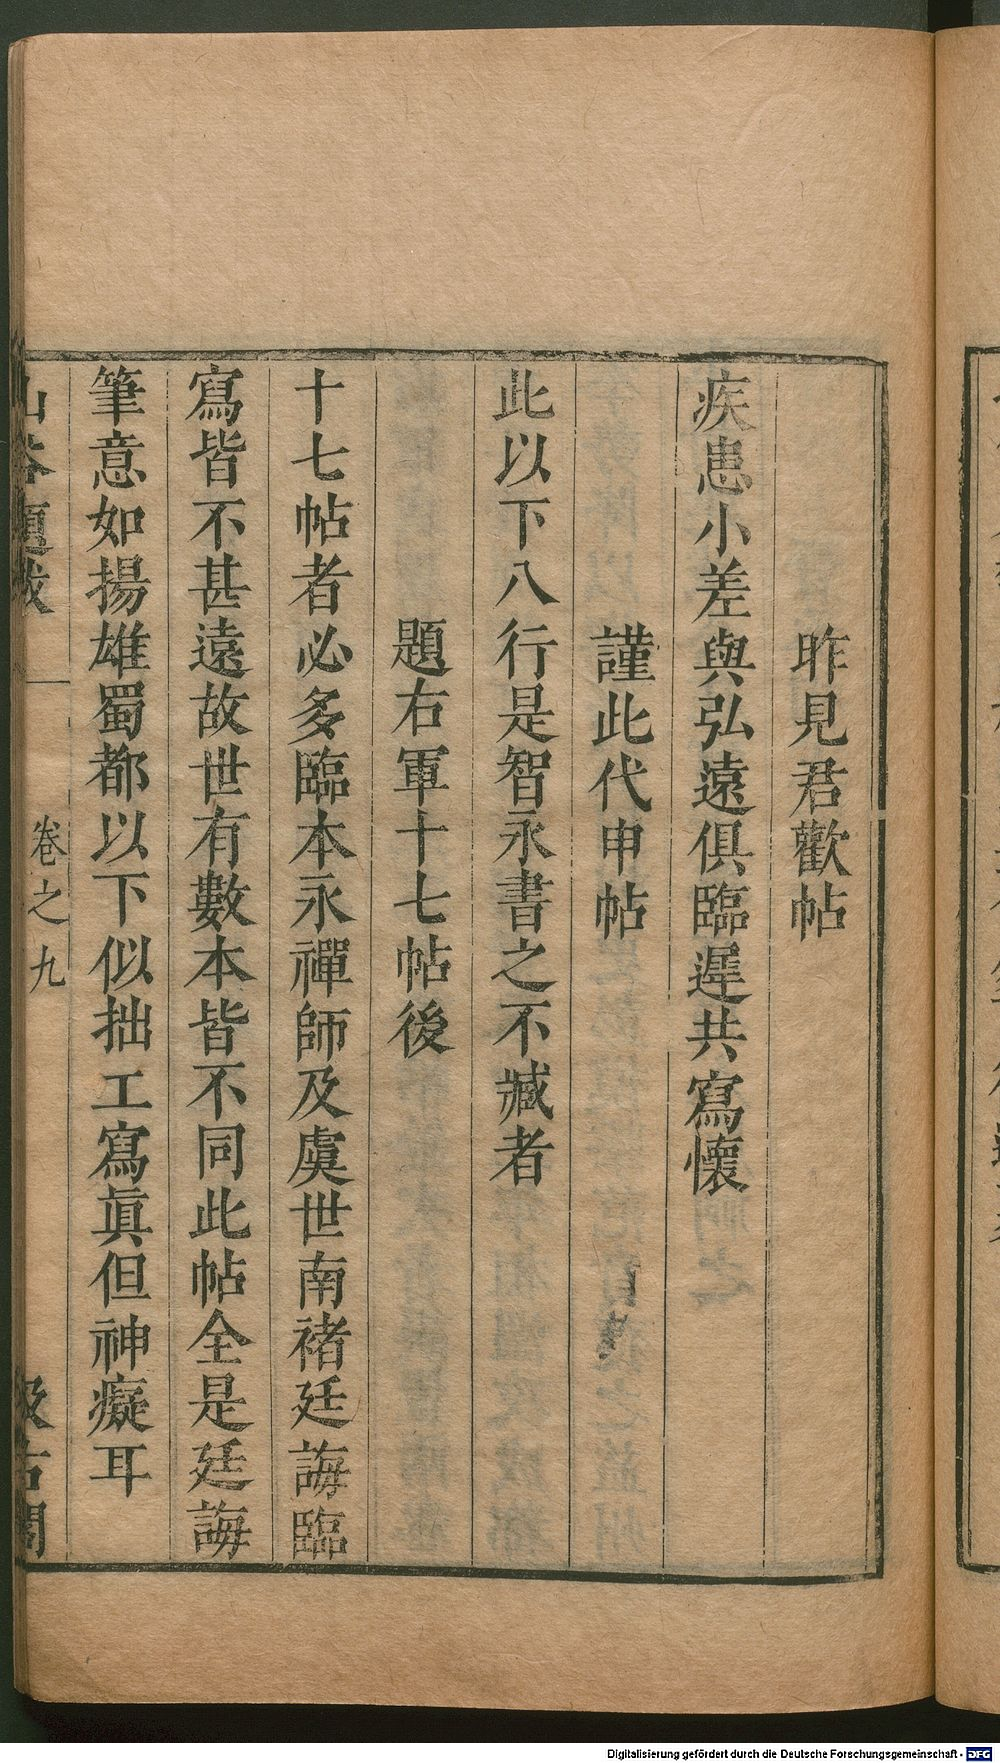 昨見君歡帖
疾患小差與弘遠俱臨遲共寫懷
謹此代申帖
此以下八行是智永書之不臧者
題右軍十七帖後
十七帖者必多臨本永禪師及虞世南褚廷誨臨
寫皆不甚遠故世有數本皆不同此帖全是廷誨
筆意如揚雄蜀都以下似拙工寫眞但神癡耳
山谷題跋
卷之九
汲古閣
Digitalisierung gefördert durch die Deutsche Forschungsgemeinschaft - DFG